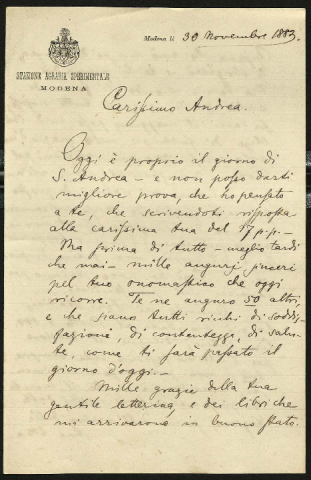 Modena li 30 Novembre 1883.
STAZIONE AGRARIA SPERIMENTALE
MODENA
Carissimo Andrea.
Oggi è proprio il giorno di
S. Andrea – e non posso darti
migliore prova, che ho pensato
a te, che scrivendoti risposta
alla carissima tua del 17 p.p. –
Ma prima di tutto – meglio tardi
che mai – mille auguri sinceri
pel tuo onomastico che oggi
ricorre. Te ne auguro 50 altri,
e che siano tutti ricchi di soddis-
fazione, di contentezza, di salu-
te, come ti sarà passato il
giorno d'oggi. –
Mille grazie della tua
gentile letterina, e dei libri che
mi arrivarono in buono stato.